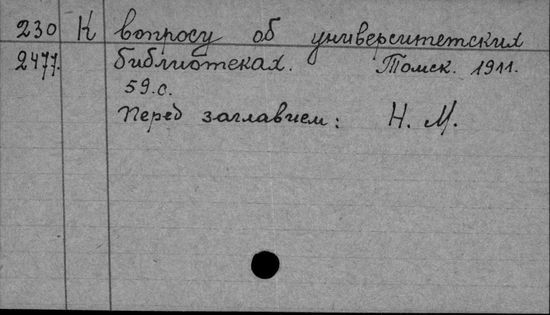 230 К вопросу об университетских
2477. библиотеках. Томск. 1911.
59.с.
Перед заглавием: Н. М.